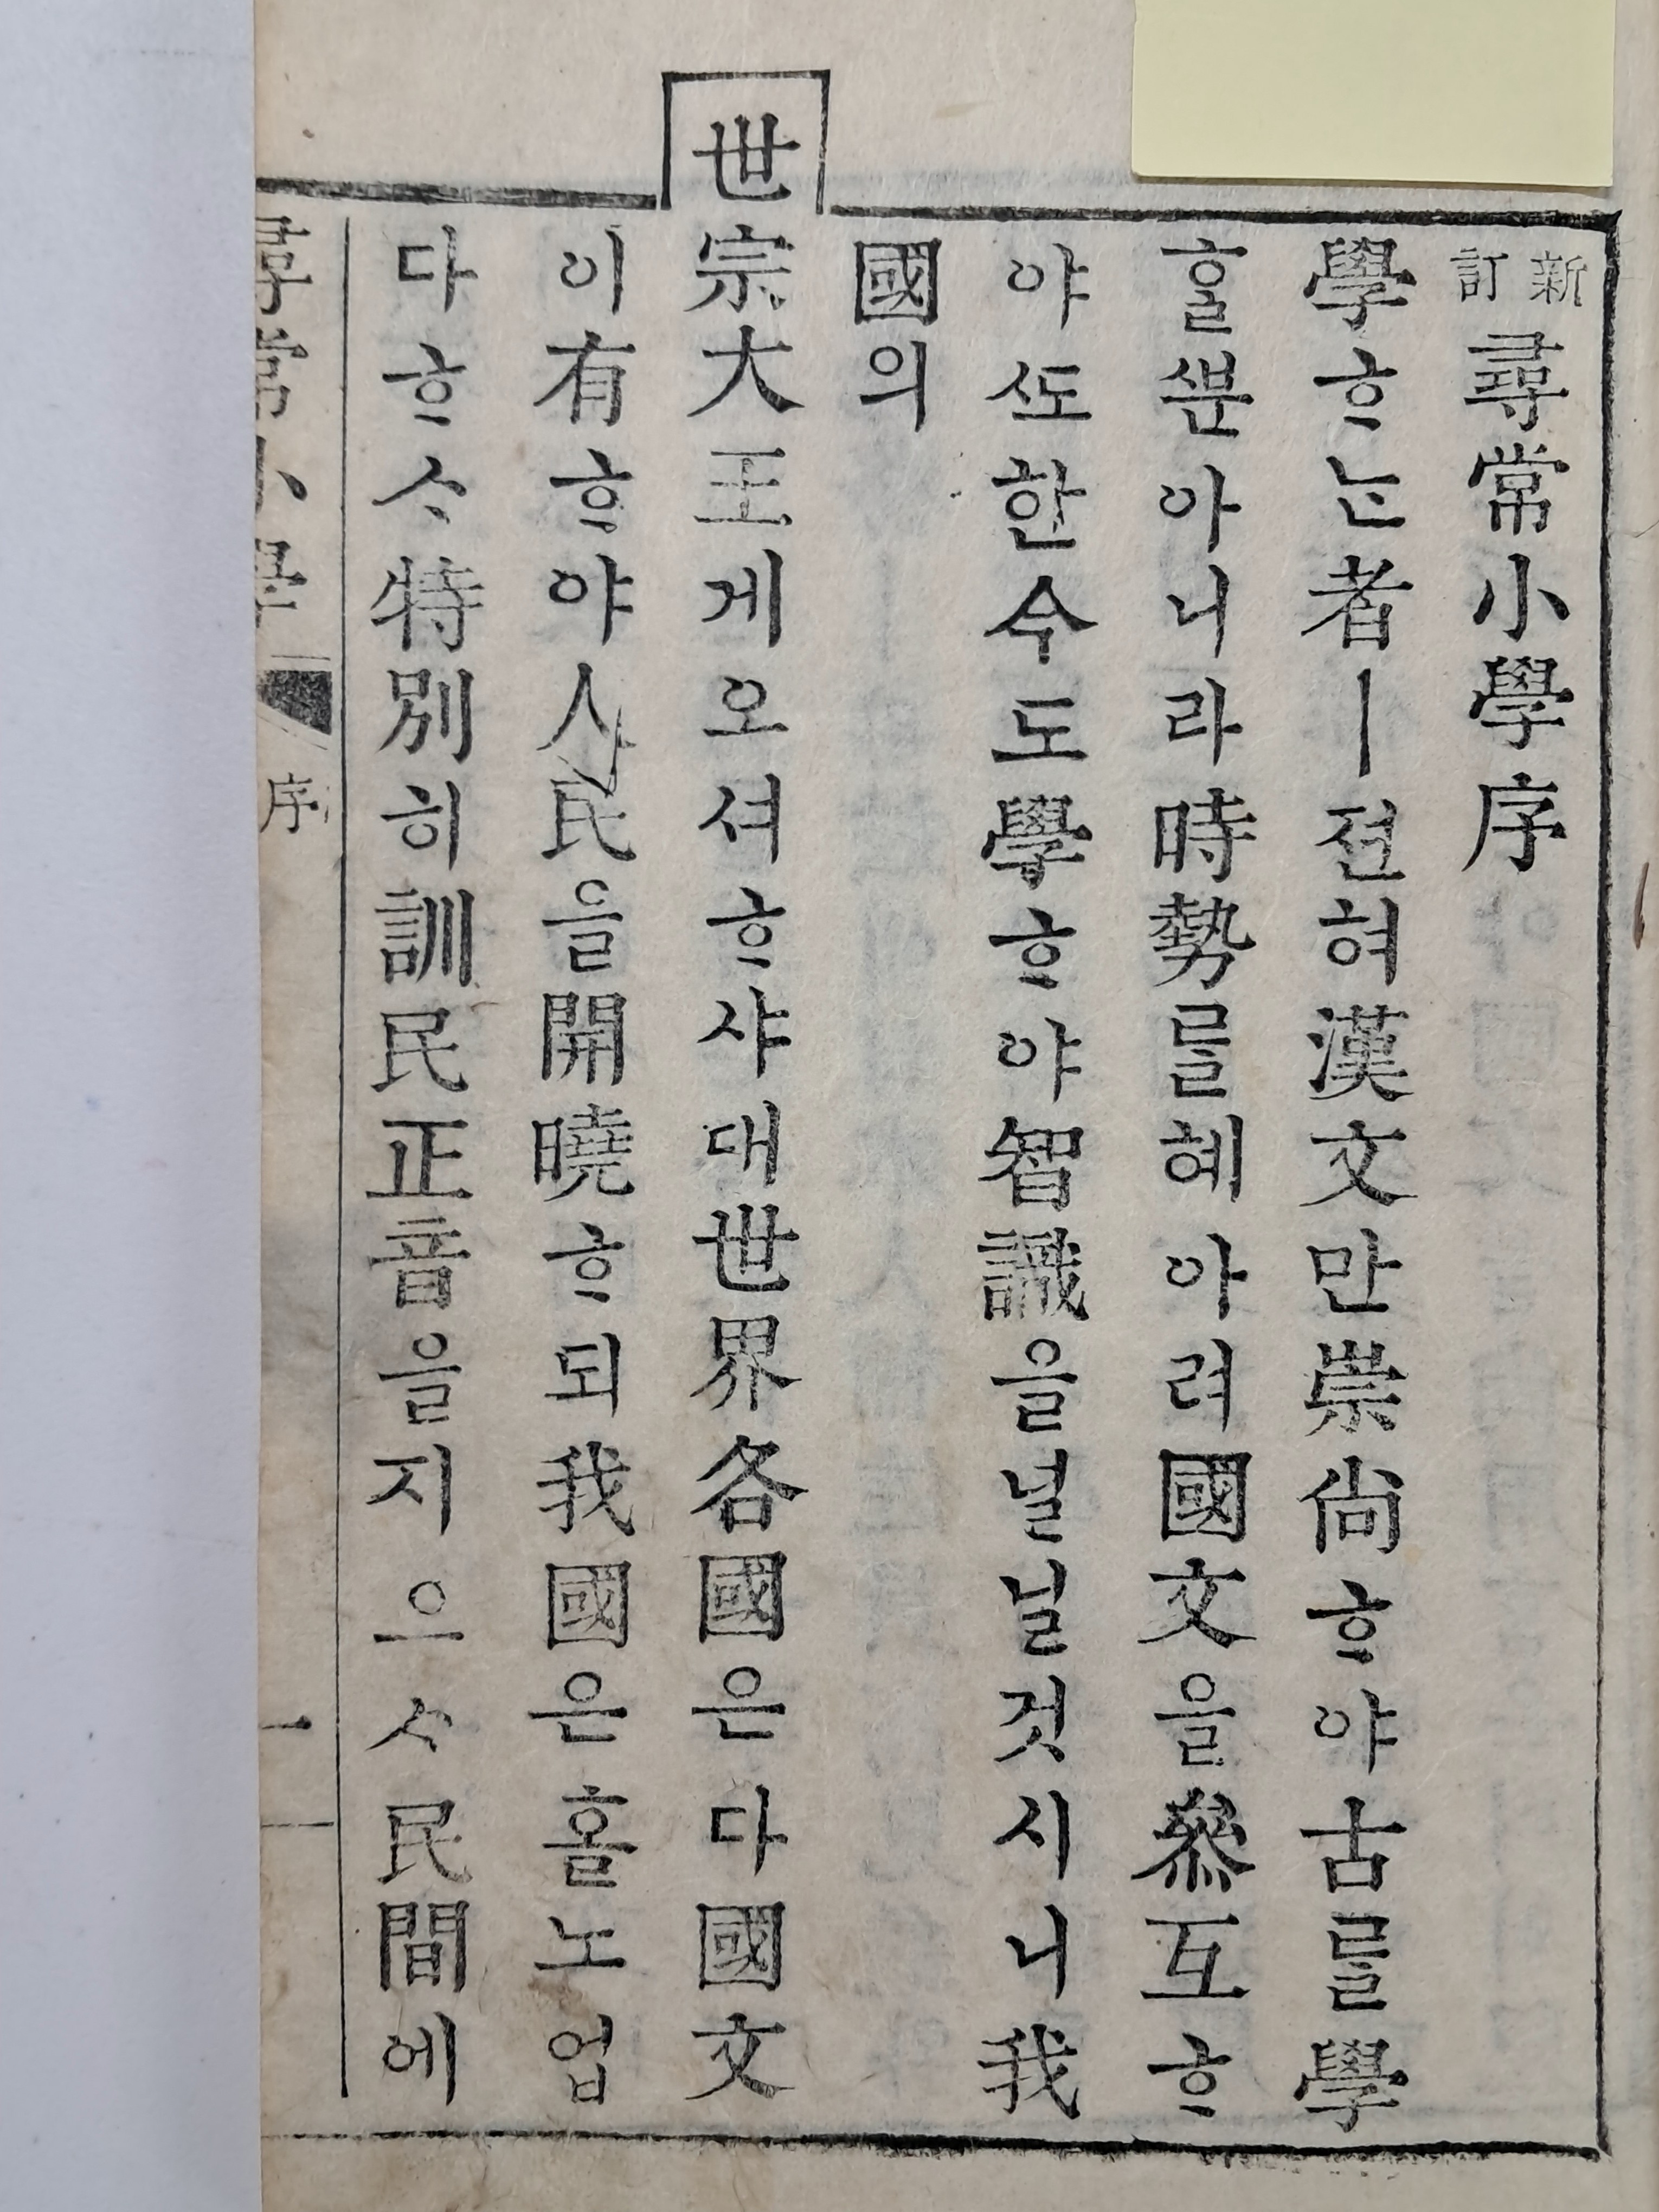 新訂尋常小學序
學ᄒᆞᄂᆞᆫ者ㅣ전혀漢文만崇尙ᄒᆞ야古를學
ᄒᆞᆯᄲᅮᆫ아니라時勢를혜아려國文을叅互ᄒᆞ
야ᄯᅩ한今도學ᄒᆞ야智識을널닐것시니我
國의
世宗大王게오셔ᄒᆞ샤대世界各國은다國文
이有ᄒᆞ야人民을開曉ᄒᆞ되我國은홀노업
다ᄒᆞᄉᆞ特別히訓民正音을지으ᄉᆞ民間에
尋常小學
序
一